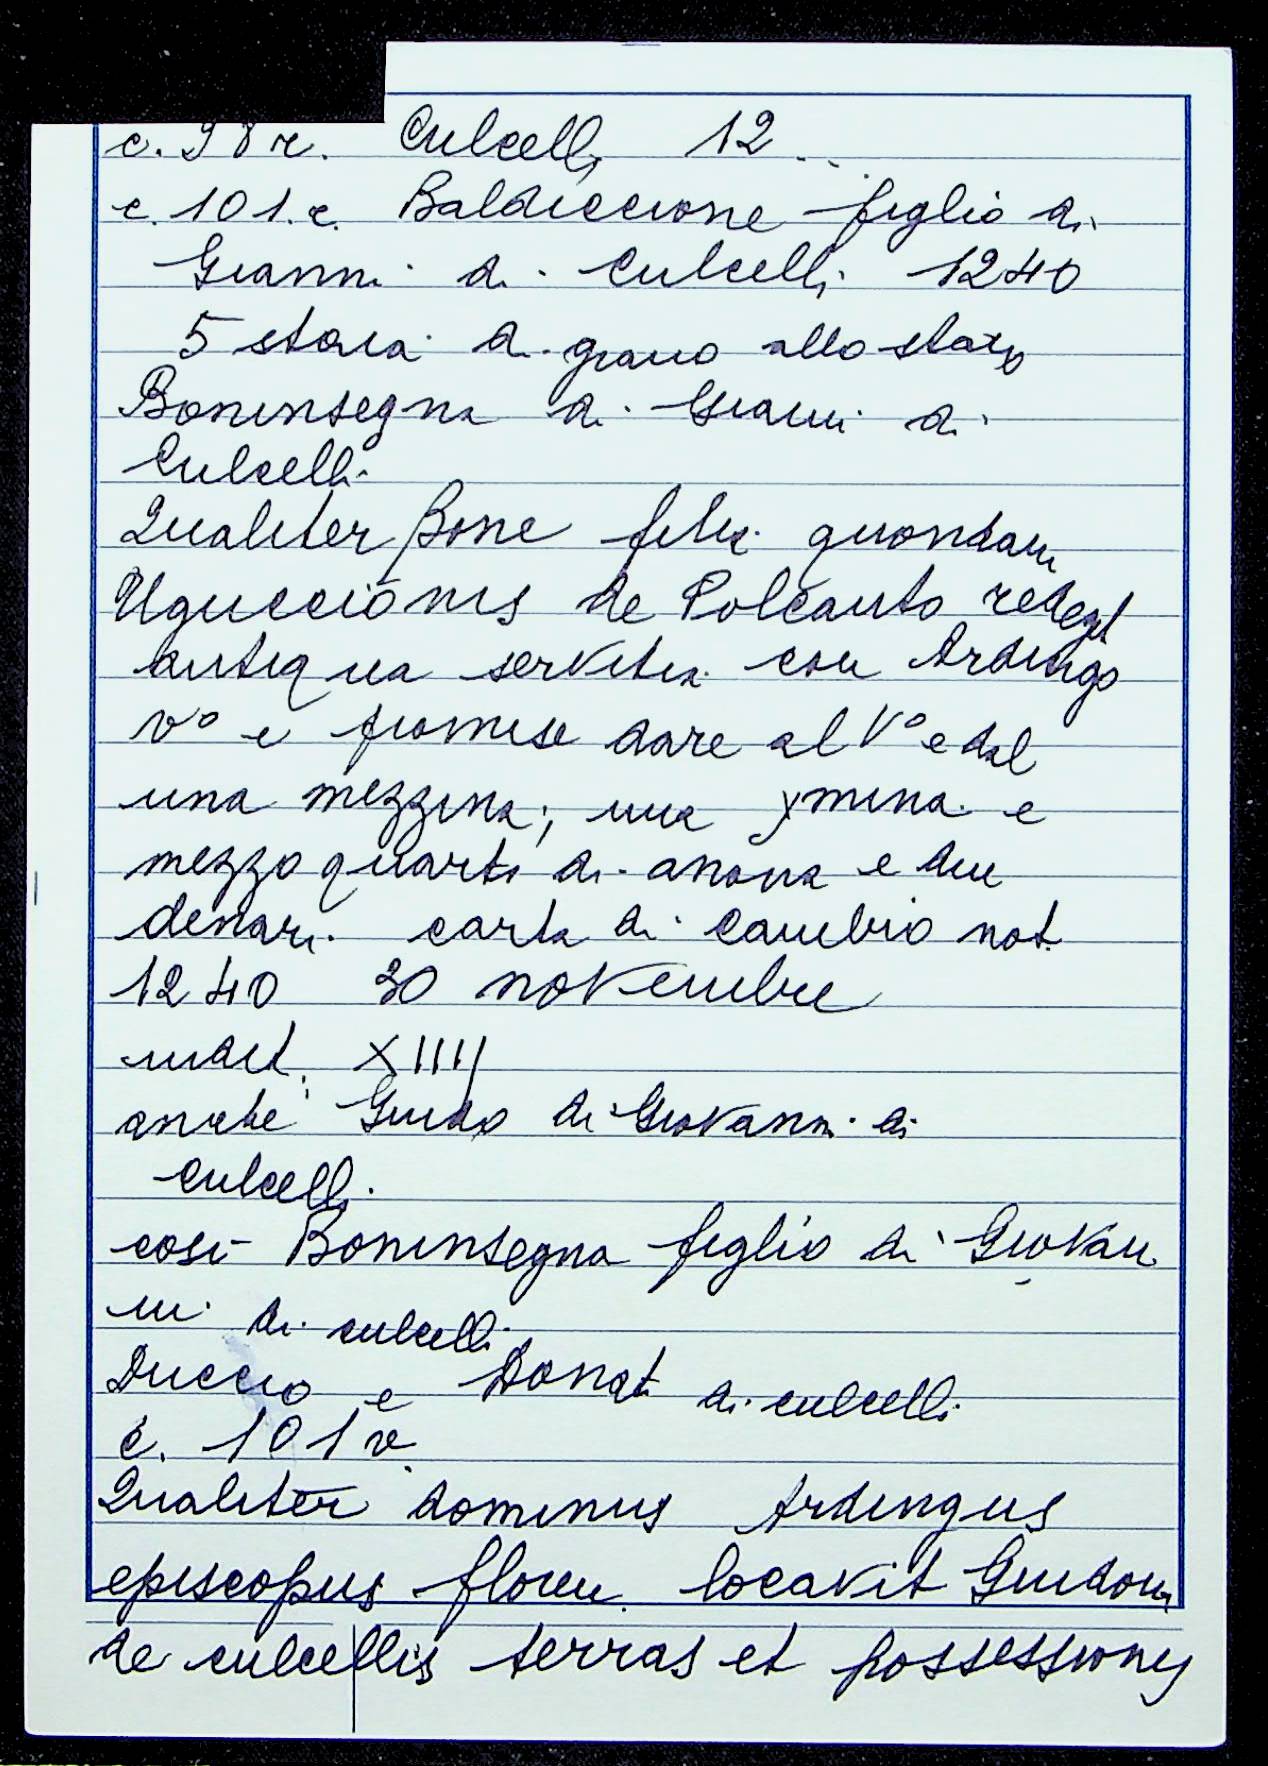 c. 98 r. Culcelli 12...
c. 101.r. Baldiccione figlio di
Gianni di Culcelli 1240
5 staia di grano allo staio
Boninsegna di Gianni di
Culcelli
Qualiter Bone filii quondam
Uguccionis de Polcanto redegit
antiqua servitia con Ardingo
v° e promise dare al V° e dal
una mezzina; una ymina e
mezzo quarto di anona e due
denari. carta di Cambio not.
1240 30 novembre
indict. XIIII
anche Guido di Giovanni di
Culcelli.
così Boninsegna figlio di Giovan
ni di culcelli
Duccio e Donati di culcelli
c. 101 v.
Qualiter dominus Ardingus
episcopus floren. locavit Guidoni
de culcellis terras et possessiones